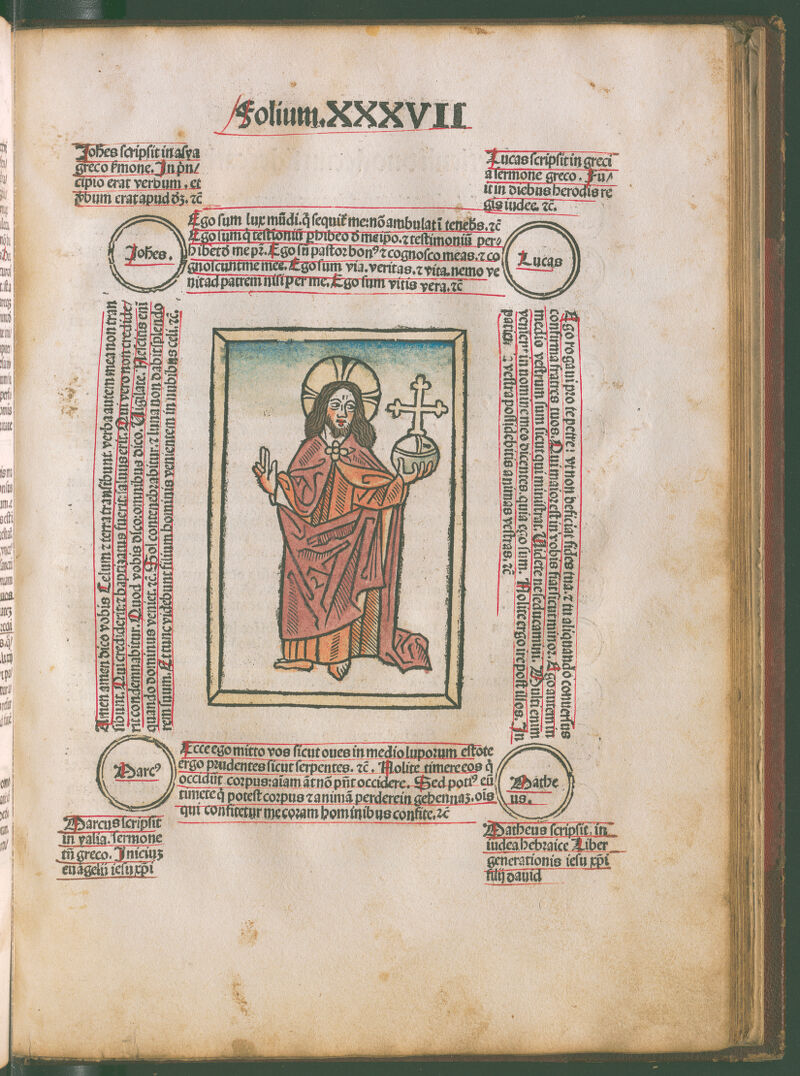 Folium. XXXVII
Johes scripsit in asya
greco s̄mone. In p̄n/
cipio erat verbum. et
v̄bum erat apud dꝫ. ⁊c̄
Lucas scripsit in greci
a sermone greco. Fu/
it in diebus herodis re
gis iudee. ⁊c̄.
Johes.
Ego sum lux mūdi. q̄ sequit̄ me: nō ambulat ī tenebs. ⁊c̄
Ego sum q̄ testioniū ꝑhibeo d̄ me ipo. ⁊ testimoniū per⸗
hibet d̄ me pr̄. Ego sū pastor bonꝰ ⁊ cognosco meas. ⁊ co
gnoscunt me mee. Ego sum via. veritas. ⁊ vita. nemo ve
nit ad patrem nisi per me. Ego sum vitis vera. ⁊c̄
Lucas
Amen amen dico vobis Celum ⁊ terra transibunt. verba autem mea non tran
sibunt. Qui crediderit ⁊ baptizatus fuerit: saluus erit. Qui vero non credide/
rit condemnabitur. Quod vobis dico: omnibus dico. Uigilate. Nescitis eni
quando dominus veniet. ⁊c̄. Sol contenebrabitur. ⁊ luna non dabit splendo
rem suum. Et tunc videbunt filium hominis venientem in nubibus celi. ⁊c̄.
Ego rogaui pro te petre: vt non deficiat fides tua. ⁊ tu aliquando conuersus
confirma fratres tuos. Qui maior est in vobis fiat sicut minor. Ego autem in
medio vestrum sum sicut qui ministrat. Uidete ne seducamini. Multi enim
venient in nomine meo dicentes. quia ego sum. Nolite ergo ire post illos. In
vestra possidebitis animas vestras. ⁊c̄
Marcꝰ
Ecce ego mitto vos sicut oues in medio luporum estote
ergo prudentes sicut serpentes. ⁊c̄. Nolite timere eos q̄
occidūt corpus: aīam āt nō pn̄t occidere. Sed potiꝰ eū
timete q̄ potest corpus ⁊ animā perdere in gehennaꝫ. ois
qui confitetur me coram hominibus confite. ⁊c̄
Mathe
us.
Marcus scripsit
in yalia. sermone
tn̄ greco. Iniciuꝫ
euāgelii iesu xp̄i
Matheus scripsit. in
iudea hebraice Liber
generationis iesu xp̄i
filij dauid